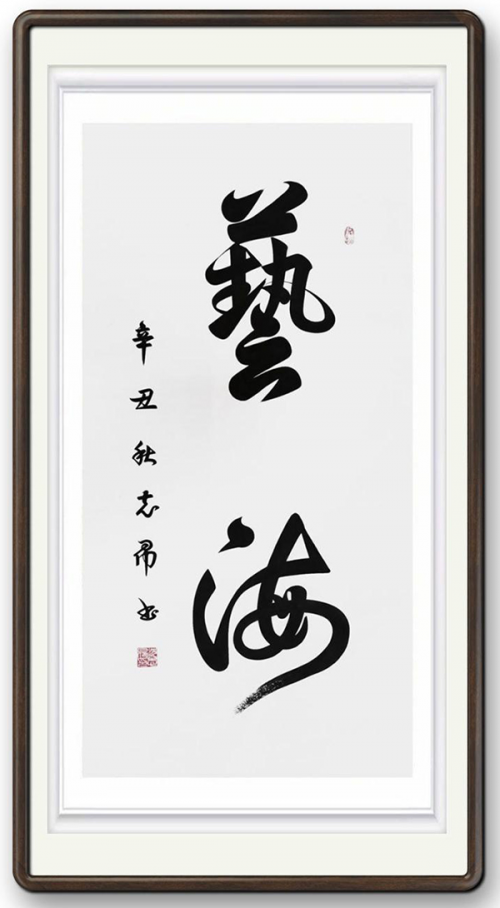 藝海
辛丑秋志书